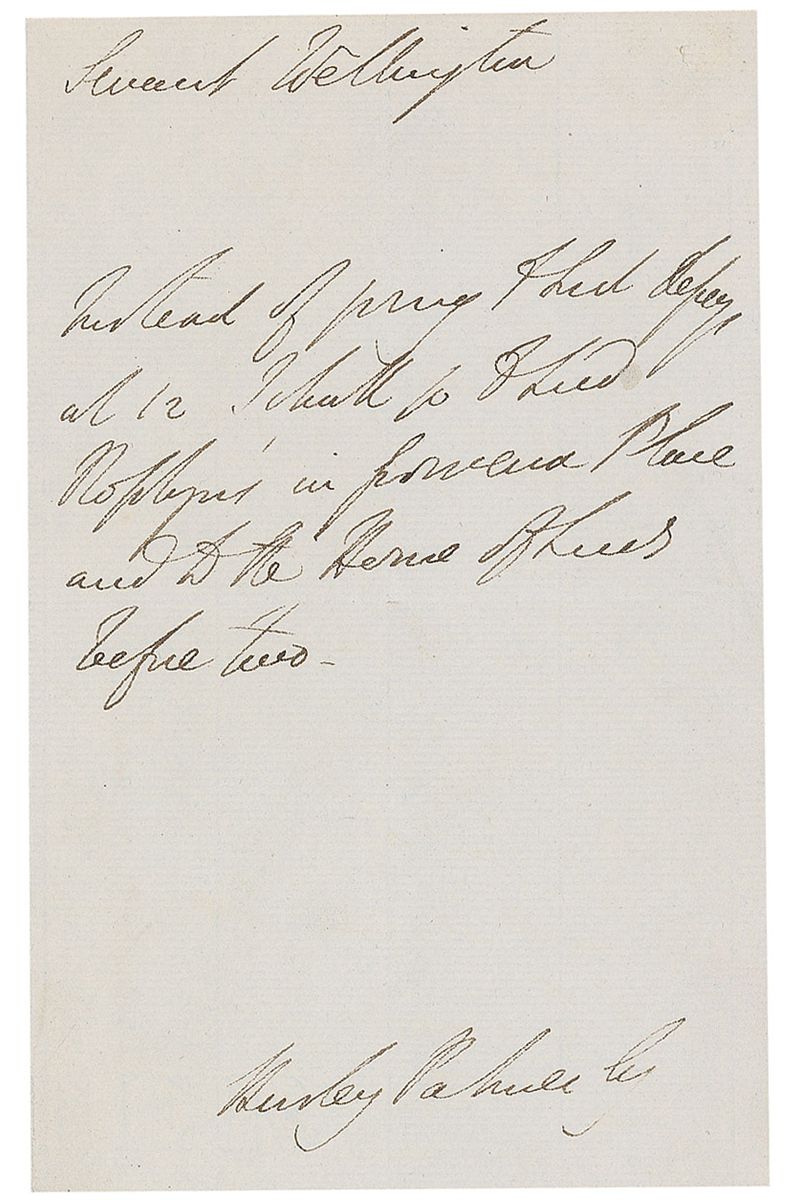 Servant Wellington
Instead of going to Lord
at 12 I shall go to Lord
Rosslyn's in Grosvenor Place
and to the House of Lords
before two -
Hurley Palmer Esq